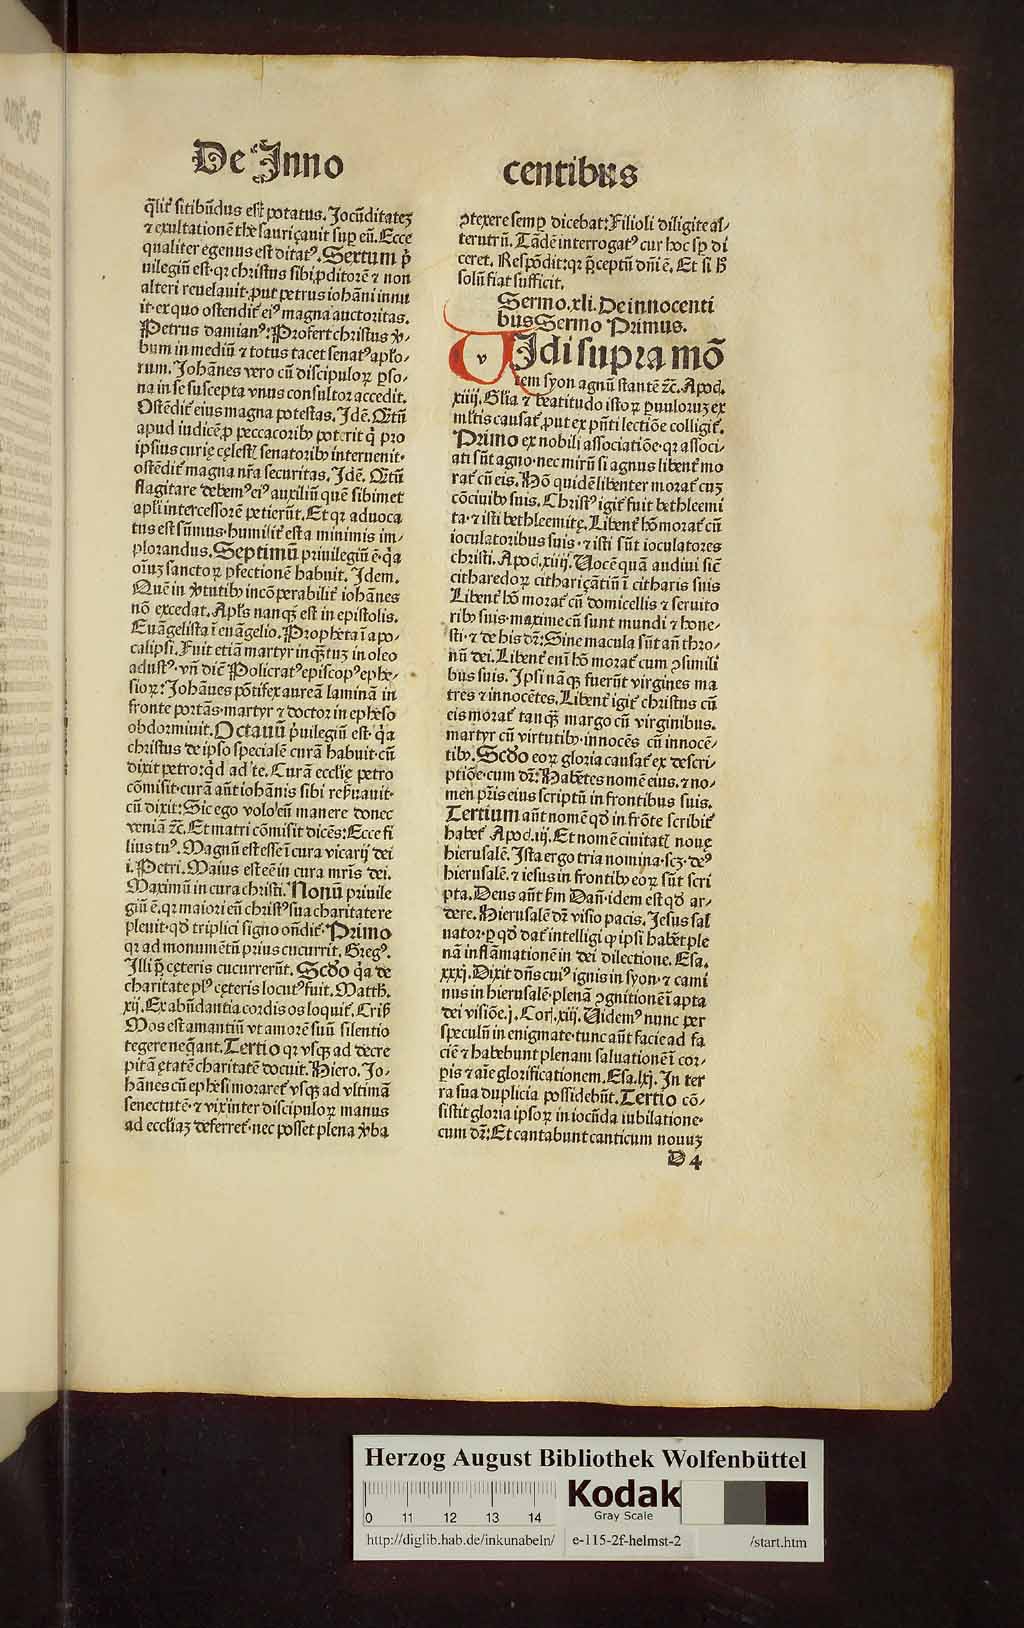 De Inno
centibus
q̄lit͛ sitibūdus est potatus. Jocūditatez
⁊ exultationē the sauriçauit suꝑ eū. Ecce
qualiter egenus est ditatꝰ. Sextum p̄
uilegiū est· qꝛ christus sibi ꝓditorē ⁊ non
alteri reuelauit· ꝓut petrus iohāni innu
it· ex quo ostendit͛ eiꝰ magna auctoritas.
Petrus damianꝰ: Profert christus v̄-
bum in mediū ⁊ totus tacet senatꝰ aplo-
rum. Johānes vero cū discipuloꝝ ꝑso-
na in se suscepta vnus consultor accedit.
Ostēdit͛ eius magna potestas. Idē. Qm̄
apud iudicē ꝓ peccacoribꝰ poterit q̄ pro
ipsius curię cęlestꝭ senatoribꝰ interuenit·
ostēdit͛ magna nr̄a securitas. Idē. Qm̄
flagitare debemꝰ eiꝰ auxiliū quē sibimet
apl̄i intercessorē petierūt. Et qꝛ aduoca
tus est sūmus· humilit͛ est a minimis im-
plorandus. Septimū priuilegiū ē· q̄a
oīuꝫ sanctoꝝ ꝑfectionē habuit. Idem.
Quē in v̄tutibꝰ incōperabilit͛ iohānes
nō excedat. Apl̄s nanqꝫ est in epistolis.
Euāgelista ī euāgelio. Propheta ī apo-
calipsi. Fuit etiā martyr inqꝫtuꝫ in oleo
adustꝰ. vn̄ dic̄ Policratꝰ episcopꝰ ephe-
sioꝝ: Johānes pōtifex aureā laminā in
fronte portās· martyr ⁊ doctor in epheso
obdormiuit. Octauū p̄uilegiū est· q̄a
christus de ipso specialē curā habuit· cū
dixit petro: q̄d ad te. Curā eccl̄ię petro
cōmisit· curā aūt iohānis sibi rẹseruauit·
cū dixit: Sic ego volo eū manere donec
veniā ⁊c̄. Et matri cōmisit dicēs: Ecce fi
lius tuꝰ. Magnū est esse ī cura vicarij dei
i. Petri. Maius est eē in cura mr̄is dei.
Maximū in cura christi. Nonū priuile
giū ē. qꝛ maiori eū christꝰ sua charitate re
pleuit· qd̄ triplici signo on̄dit͛. Primo
qꝛ ad monumētū prius cucurrit. Gregꝰ.
Illi p̄ cęteris cucurrerūt. Scd̄o q̄a de
charitate plꝰ cęteris locutꝰ fuit. Matth̄.
xij. Ex abūdantia cordis os loquit͛. Crisꝰ
Mos est amantiū vt amorē suū silentio
tegere neq̄ant. Tertio qꝛ vsqꝫ ad decre
pitā ętatē charitatē docuit. Hiero. Jo-
hānes cū ephesi moraret͛ vsqꝫ ad vltimā
senectutē· ⁊ vix inter discipuloꝝ manus
ad eccl̄iaꝫ deferret͛· nec posset plena v̄ba
ꝯtexere semꝑ dicebat: Filioli diligite al-
terutrū. Tādē interrogatꝰ cur hoc sꝑ di
ceret. Respōdit: qꝛ p̄ceptū dn̄i ē. Et si h̄
solū fiat sufficit.
Sermo .xli. De innocenti
bus Sermo Primus.
v
Jdi supra mō
tem syon agnū stantē ⁊c̄. Apoc.
xiiij. Gl̄ia ⁊ beatitudo istoꝝ puuloruꝫ ex
ml̄tis causat͛, put ex pn̄ti lectiōe colligit͛.
Primo ex nobili associatiōe· qꝛ associ-
ati sūt agno· nec mirū si agnus libent͛ mo
rat͛ cū eis. Hō quidē libenter morat͛ cuꝫ
cōciuibꝰ suis. Christꝰ igit͛ fuit bethleemi
ta· ⁊ isti bethleemitę. Libent͛ hō morat͛ cū
ioculatoribus suis· ⁊ isti sūt ioculatores
christi. Apoc̄. xiiij. Uocē quā audiui sic̄
citharedoꝝ citharicātiū ī citharis suis
Libent͛ hō morat͛ cū domicellis ⁊ seruito
ribꝰ suis· maxime cū sunt mundi ⁊ hone-
sti· ⁊ de his dr̄: Sine macula sūt an̄ thro-
nū dei. Libent͛ enī hō morat͛ cum ꝯsimili
bus suis. Ipsi nāqꝫ fuerūt virgines ma
tres ⁊ innocētes. Libent͛ igit͛ christus cū
eis morat͛ tanqꝫ margo cū virginibus.
martyr cū virtutibꝰ· innocēs cū innocē-
tibꝰ. Scd̄o eoꝝ gloria causat͛ ex descri-
ptiōe· cum dr̄: Habētes nomē eius. ⁊ no-
men pr̄is eius scriptū in frontibus suis.
Tertium aūt nomē qd̄ in frōte scribit͛
habet͛ Apoc̄. iij. Et nomē ciuitatꝭ nouę
hierusalē. Ista ergo tria nomina· scꝫ· deꝰ
hierusalē. ⁊ iesus in frontibꝰ eoꝝ sūt scri
pta. Deus aūt h̄m Dan̄· idem est qd̄ ar-
dere. Hierusalē dr̄ visio pacis. Jesus sal
uator· ꝑ qd̄ dat͛ intelligi qꝙ ipsi habēt ple
nā inflāmationē in dei dilectione. Esa.
xxxj. Dixit dn̄s cuiꝰ ignis in syon· ⁊ cami
nus in hierusalē· plenā ꝯgnitionē ī apta
dei visiōe. j. Corꝭ. xiij. Uidemꝰ nunc per
speculū in enigmate· tunc aūt facie ad fa
ciē ⁊ habebunt plenam saluationē ī cor-
pis ⁊ aīe glorificationem. Esa. lxj. In ter
ra sua duplicia possidebūt. Tertio cō-
sistit gloria ipsoꝝ in iocūda iubilatione·
cum dr̄: Et cantabunt canticum nouuꝫ
D 4
Herzog August Bibliothek Wolfenbüttel
0 11 12 13 14
Kodak
Gray Scale
http://diglib.hab.de/inkunabeln/ e-115-2f-helmst-2 /start.htm